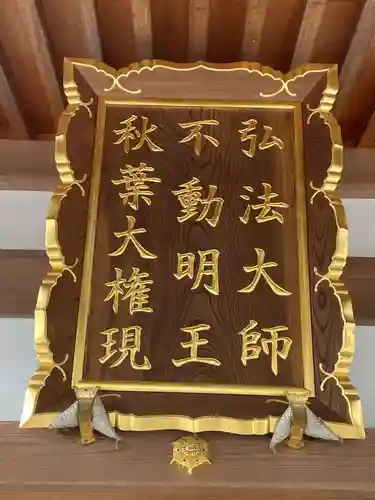 弘法大師
不動明王
秋葉大権現